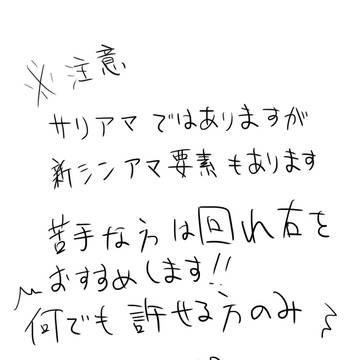 ※注意
サリアマではありますが
新シンアマ要素もあります
苦手な方は回れ右を
おすすめします!!
何でも許せる方のみ